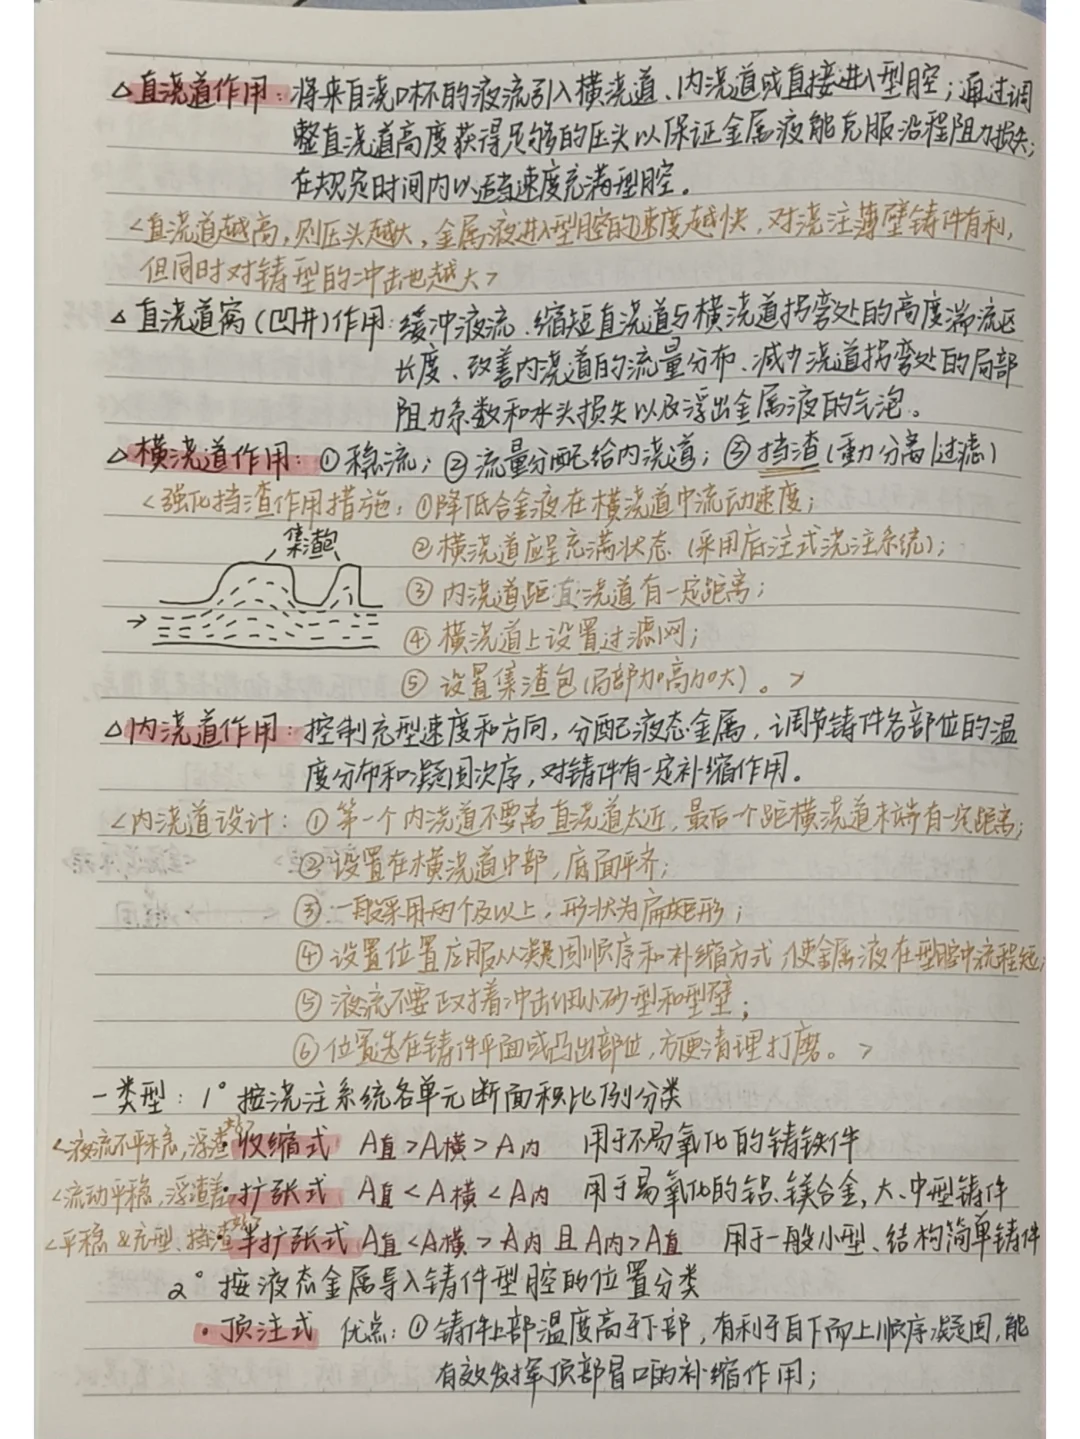 △直浇道作用：将来自浇口杯的液流引入横浇道、内浇道或直接进入型腔；通过调
整直浇道高度获得足够的压头以保证金属液能克服沿程阻力损失；
在规定时间内以适当速度充满型腔。
<直浇道越高，则压头越大，金属液进入型腔的速度越快，对浇注薄壁铸件有利，
但同时对铸型的冲击也越大>
△直浇道窝（凹井）作用：缓冲液流、缩短直浇道与横浇道拐弯处的高度湍流区
长度、改善内浇道的流量分布、减少浇道拐弯处的局部
阻力系数和水头损失以及浮出金属液的气泡。
△横浇道作用：①稳流；②流量分配给内浇道；③挡渣（重力分离/过滤）
<强化挡渣作用措施：①降低合金液在横浇道中流动速度；
集渣包
②横浇道应呈充满状态（采用底注式浇注系统）；
③内浇道距直浇道有一定距离；
④横浇道上设置过滤网；
⑤设置集渣包（局部加高加大）。>
△内浇道作用：控制充型速度和方向，分配液态金属，调节铸件各部位的温
度分布和凝固次序，对铸件有一定补缩作用。
<内浇道设计：①第一个内浇道不要离直浇道太近，最后一个距横浇道末端有一定距离；
②设置在横浇道中部，底面平齐；
③一般采用两个及以上，形状为扁矩形；
④设置位置应服从凝固顺序和补缩方式，使金属液在型腔中流程短；
⑤液流不要正对着冲击细小砂型和型壁；
⑥位置选在铸件平面或凸出部位，方便清理打磨。>
一类型：1°按浇注系统各单元断面积比例分类
<液流不平稳，浮渣好
·收缩式 A直>A横>A内 用于不易氧化的铸铁件
<流动平稳，浮渣差
·扩张式 A直<A横<A内 用于易氧化的铝、镁合金，大、中型铸件
<平稳&充型、挡渣好
·半扩张式 A直<A横>A内且A内>A直 用于一般小型、结构简单铸件
2°按液态金属导入铸件型腔的位置分类
·顶注式 优点：①铸件上部温度高于下部，有利于自下而上顺序凝固，能
有效发挥顶部冒口的补缩作用；